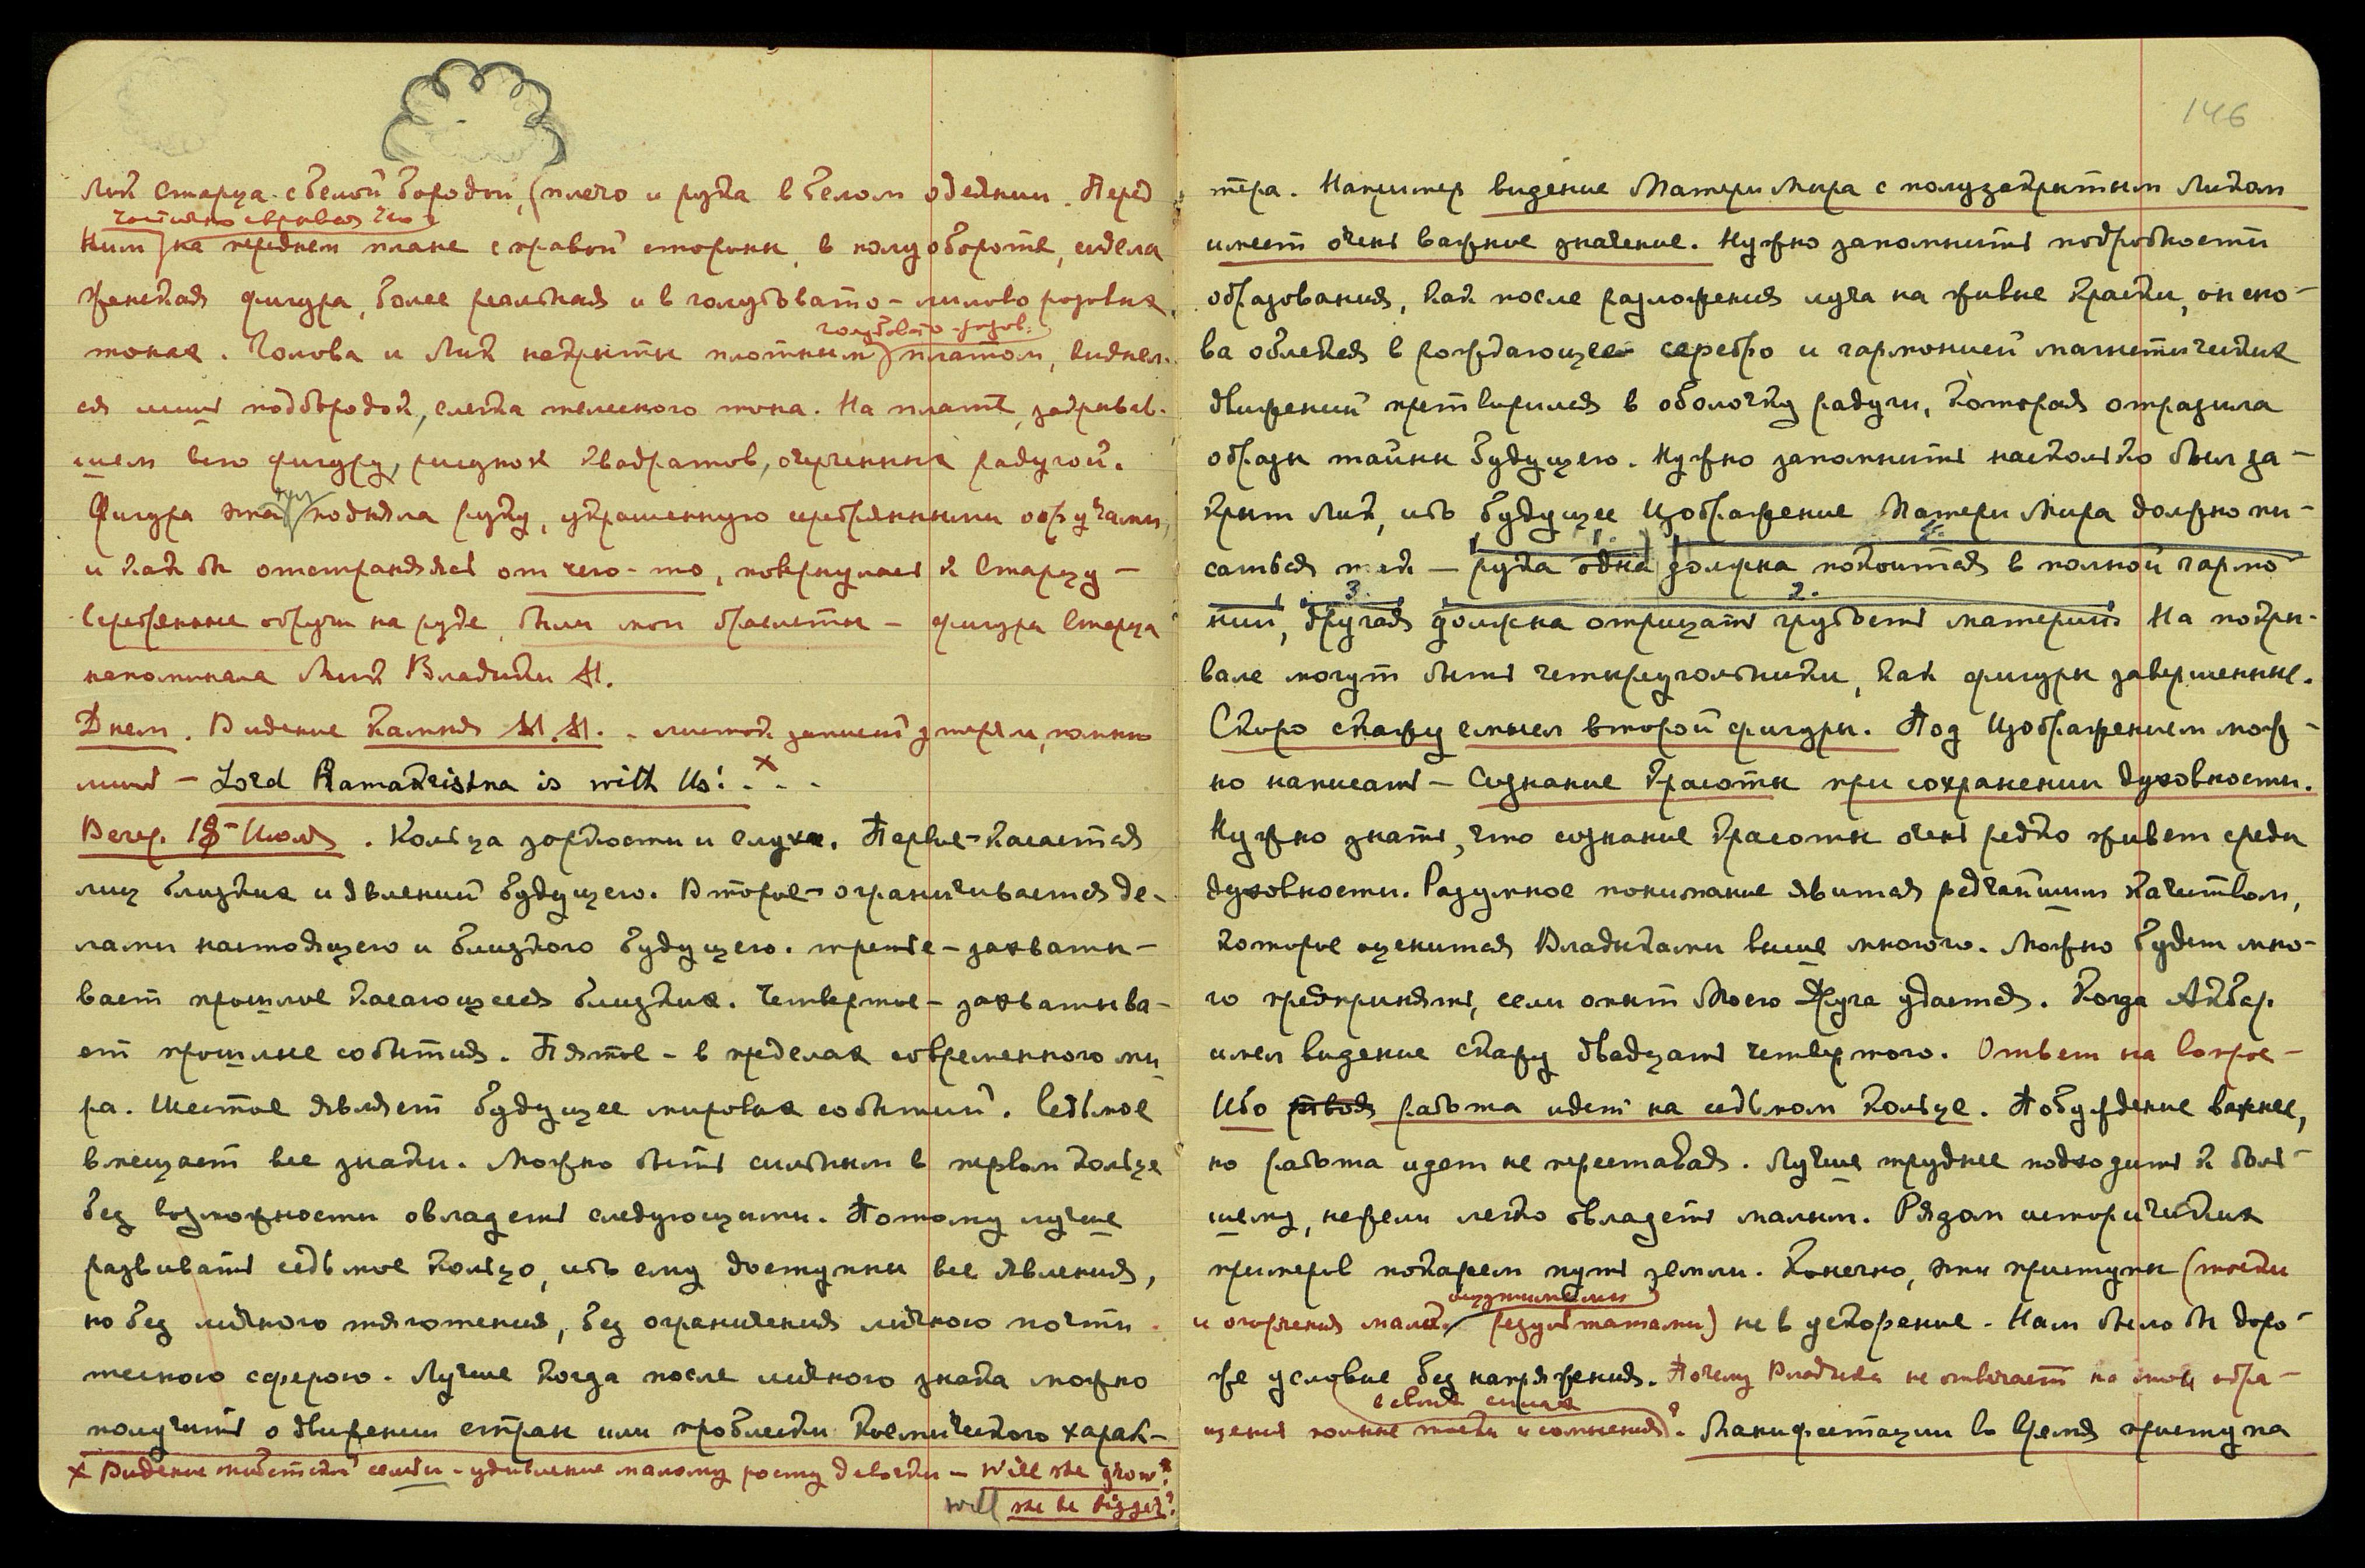 Лик Старца с белой бородой, (плечо и рука в белом одеянии. Перед
частично скрывая Его
Ним) на переднем плане с правой стороны, в полуобороте, сидела
женская фигура, более реальная и в голубовато-лилово розовых
голубовато-розов.
тонах. Голова и Лик покрыты плотным) платом, виднел-
ся лишь подбородок, слегка телесного тона. На плате, закрывав-
шем всю фигуру, рисунок квадратов, очерченных радугой.
Фигура эта подняла руку, украшенную серебрянными обручами,
и как бы отстраняясь от чего-то, повернулась к Старцу –
Серебрянные обручи на руке, были мои браслеты – фигура Старца
напоминала Лик Владыки М.
Днем. Видение Камня М. М. – листок записей утеряли, помню
лишь – Lord Ramakrishna is with Us! . x . .
Вечер. 18 – Июля . Кольца зоркости и слуха. Первое – касается
лиц близких и явлений будущего. Второе – ограничивается де-
лами настоящего и близкого будущего. третье – захваты-
вает прошлое касающееся близких. Четвертое – захватыва-
ет прошлые события. Пятое – в пределах современного ми-
ра. Шестое являет будущее мировых событий. Седьмое
вмещает все знаки. Можно быть сильным в первом кольце
без возможности овладеть следующими. Потому лучше
развивать седьмое кольцо, ибо ему доступны все явления,
но без личного тяготения, без ограничения личного почти
телесного сферою. Лучше когда после личного знака можно
получить о движении стран или проблески космического харак-
x Видение тибетской семьи – удивление малому росту девочки – Will she grow?
will she be bigger?
146
тера. Например видение Матери Мира с полузакрытым Ликом
имеет очень важное значение. Нужно запомнить подробности
образования, как после разложения луча на живые краски, он сно-
ва облекся в рождающее серебро и гармонией магнетических
движений претворился в оболочку радуги, которая отразила
образы тайны будущего. Нужно запомнить насколько был за-
крыт Лик, ибо будущее Изображение Матери Мира должно пи-
1. 4.
саться так – рука одна должна покоится в полной гармо-
3. 2.
нии, другая должна отрицать грубость материи. На покры-
вале могут быть четыреугольники, как фигуры завершенные.
Скоро скажу смысл второй фигуры. Под Изображением мож-
но написать – Сознание Красоты при сохранении духовности.
Нужно знать, что сознание красоты очень редко живет среди
духовности. Разумное понимание явится редчайшим качеством,
которое оценится Владыками выше многого. Можно будет мно-
го предпринять, если опыт Моего Друга удастся. Когда Акбар
имел видение скажу двадцать четвертого. Ответ на вопрос –
Ибо работа идет на седьмом кольце. Побуждение важнее,
но работа идет не переставая. Лучше труднее подходить к боль-
шему, нежели легко овладеть малым. Рядом исторических
примеров покажем путь земли. Конечно, эти приступы (тоски
и огорчения малыми результатами) не в ускорение. Нам было бы доро-
же условие без напряжения. Почему Владыка не отвечает на мои обра-
в своих силах
щения полные тоски и сомнения? Манифестации во время приступа